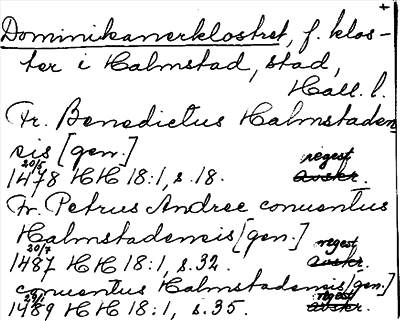 +
Dominikanerklostret, f. klos-
ter i Halmstad, stad,
Hall. l.
Fr. Benedictus Halmstaden
sis [gen.]
20/5 regest
1478 HH 18:1, s. 18. avskr.
Fr. Petrus Andree conventus
Halmstadensis [gen.]
20/7 regest
1487 HH 18:1, s. 32. avskr.
conventus Halmstadensis [gen.]
regest
1489 HH 18:1, s. 35. avskr.